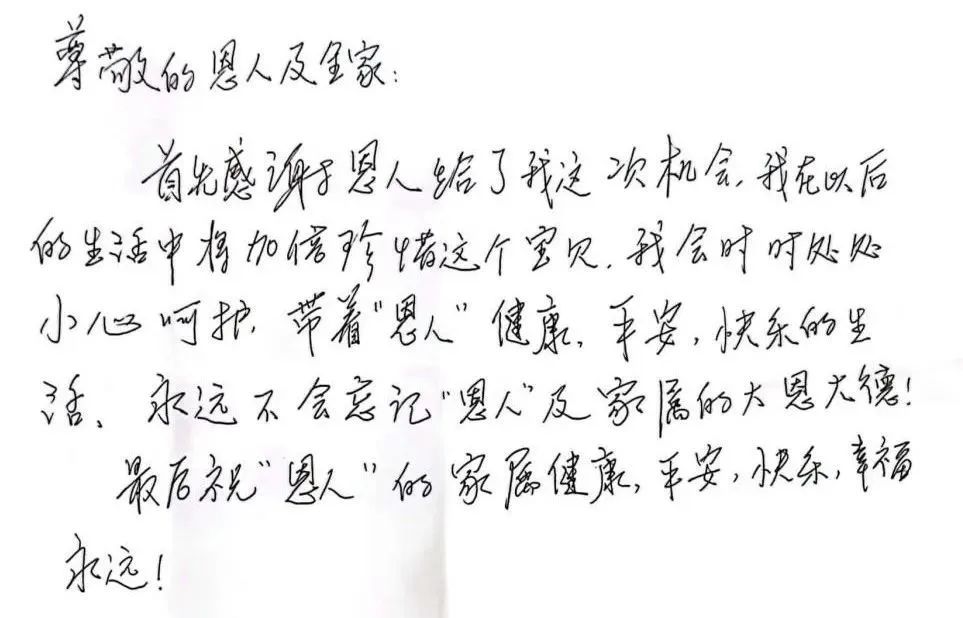 尊敬的恩人及全家：
首先感谢于恩人给了我这次机会，我在以后
的生活中将加倍珍惜这个宝贝，我会时时处处
小心呵护，带着“恩人”健康，平安，快乐的生
活、永远不会忘记“恩人”及家属的大恩大德！
最后祝“恩人”的家属健康，平安，快乐，幸福
永远！